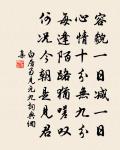 容貌一日減一日
心情十分無九分
每逢陌路猶嗟叹
何況今朝是見君
白居易見元九詞典網
集